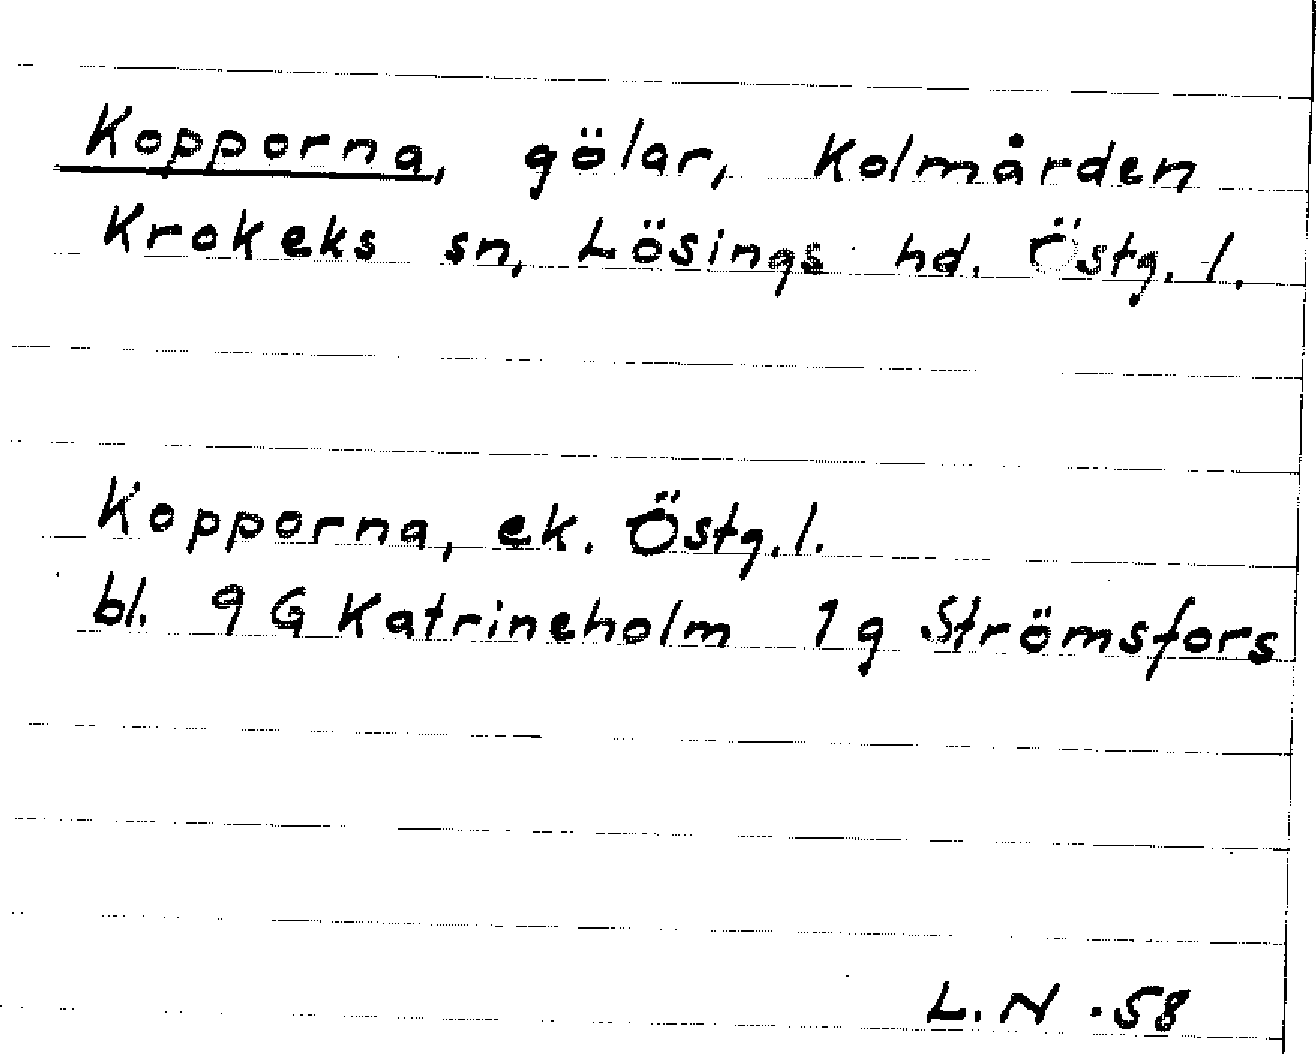 Kopporna, gölar, Kolmården
Krokeks sn, Lösings hd. Östg. l.
Kopporna, ek. Östg. l.
bl. 9 G Katrineholm 1 g Strömsfors
L. N. 58